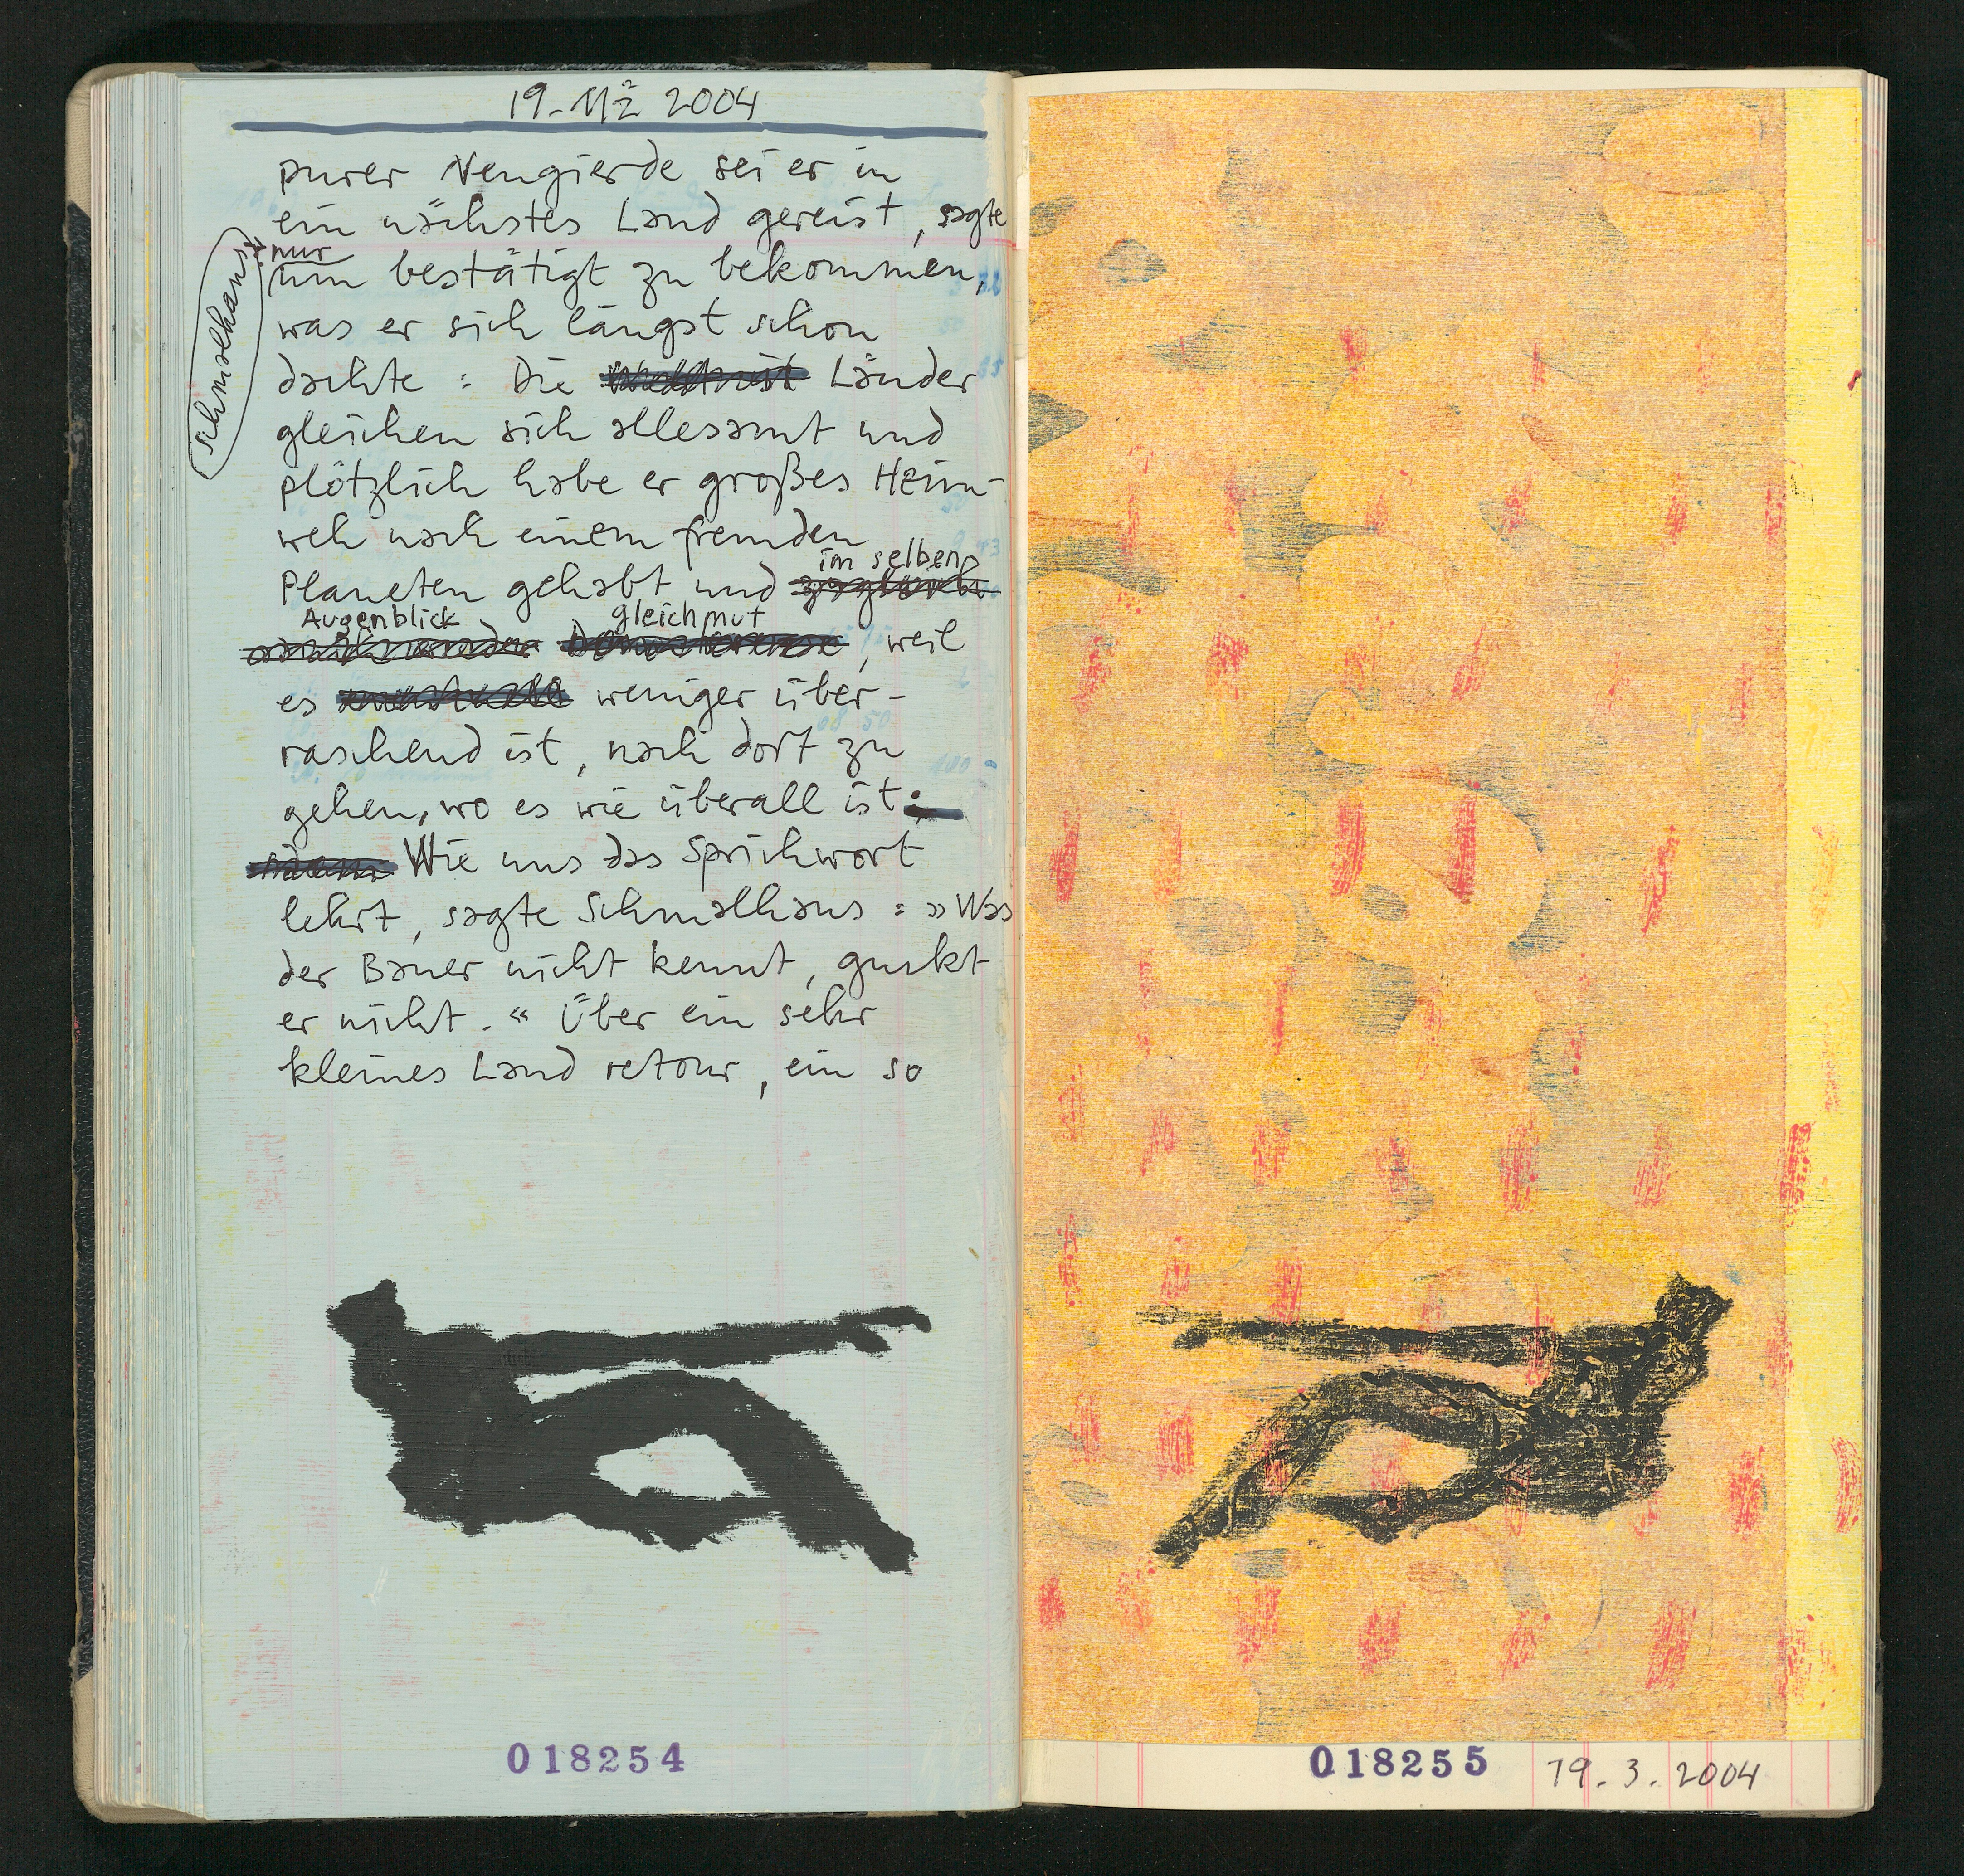 19. Mz 2004
purer Neugierde sei er in
ein nächstes Land gereist, sagte
Schmalhans:
nur
um bestätigt zu bekommen,
was er sich längst schon
dachte: Die Länder
gleichen sich allesamt und
plötzlich habe er großes Heim-
weh nach einem fremden
im selben
Planeten gehabt und
Augenblick gleichmut
, weil
es weniger über-
raschend ist, nach dort zu
gehen, wo es wie überall ist.
Wie uns das Sprichwort
lehrt, sagte Schmalhans: »Was
der Bauer nicht kennt, guckt
er nicht.« Über ein sehr
kleines Land retour, ein so
018254
018255 19.3.2004